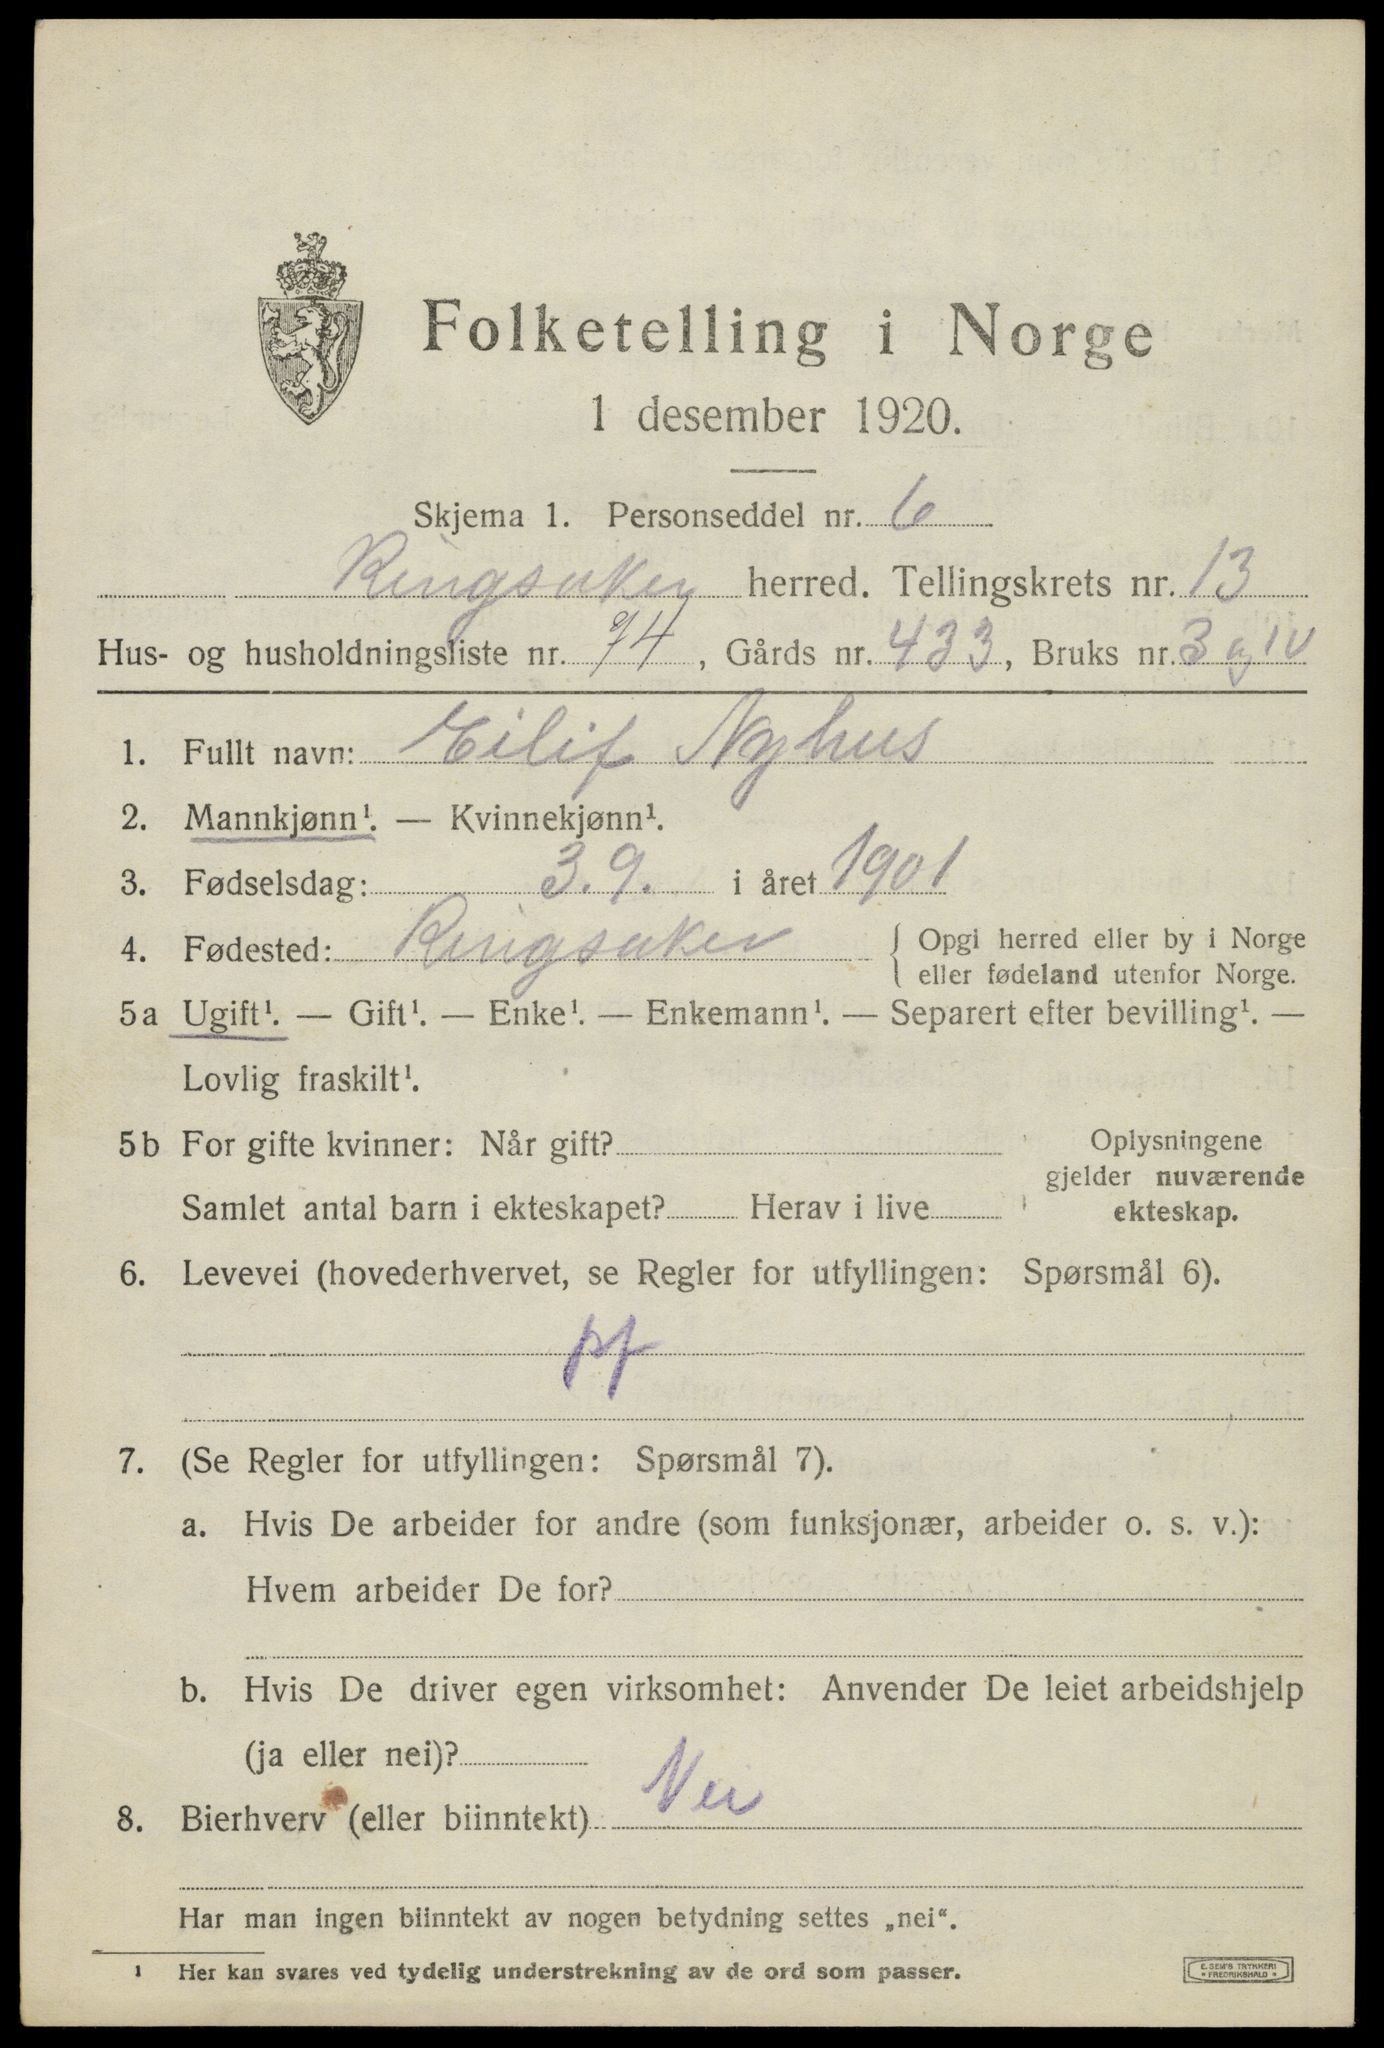 Folketelling i Norge
1 desember 1920.
Skjema 1. Personseddel nr. 6
Ringsaker herred. Tellingskrets nr. 13
Hus- og husholdningsliste nr. 74, Gårds nr. 433, Bruks nr. 3 og 10
1. Fullt navn: Eilif Nyhus
2. Mannkjønn¹. — Kvinnekjønn¹.
3. Fødselsdag: 3.9. i året 1901
4. Fødested: Ringsaker { Opgi herred eller by i Norge
eller fødeland utenfor Norge.
5a Ugift¹. — Gift¹. — Enke¹. — Enkemann¹. — Separert efter bevilling¹. —
Lovlig fraskilt¹.
5b For gifte kvinner: Når gift?
Samlet antal barn i ekteskapet? Herav i live
Oplysningene
gjelder nuværende
ekteskap.
6. Levevei (hovederhvervet, se Regler for utfyllingen: Spørsmål 6).
7. (Se Regler for utfyllingen: Spørsmål 7).
a. Hvis De arbeider for andre (som funksjonær, arbeider o. s. v.):
Hvem arbeider De for?
b. Hvis De driver egen virksomhet: Anvender De leiet arbeidshjelp
(ja eller nei)?
8. Bierhverv (eller biinntekt) Nei
Har man ingen biinntekt av nogen betydning settes „nei“.
¹ Her kan svares ved tydelig understrekning av de ord som passer.
E. SEM'S TRYKKERI
* FREDRIKSHALD *